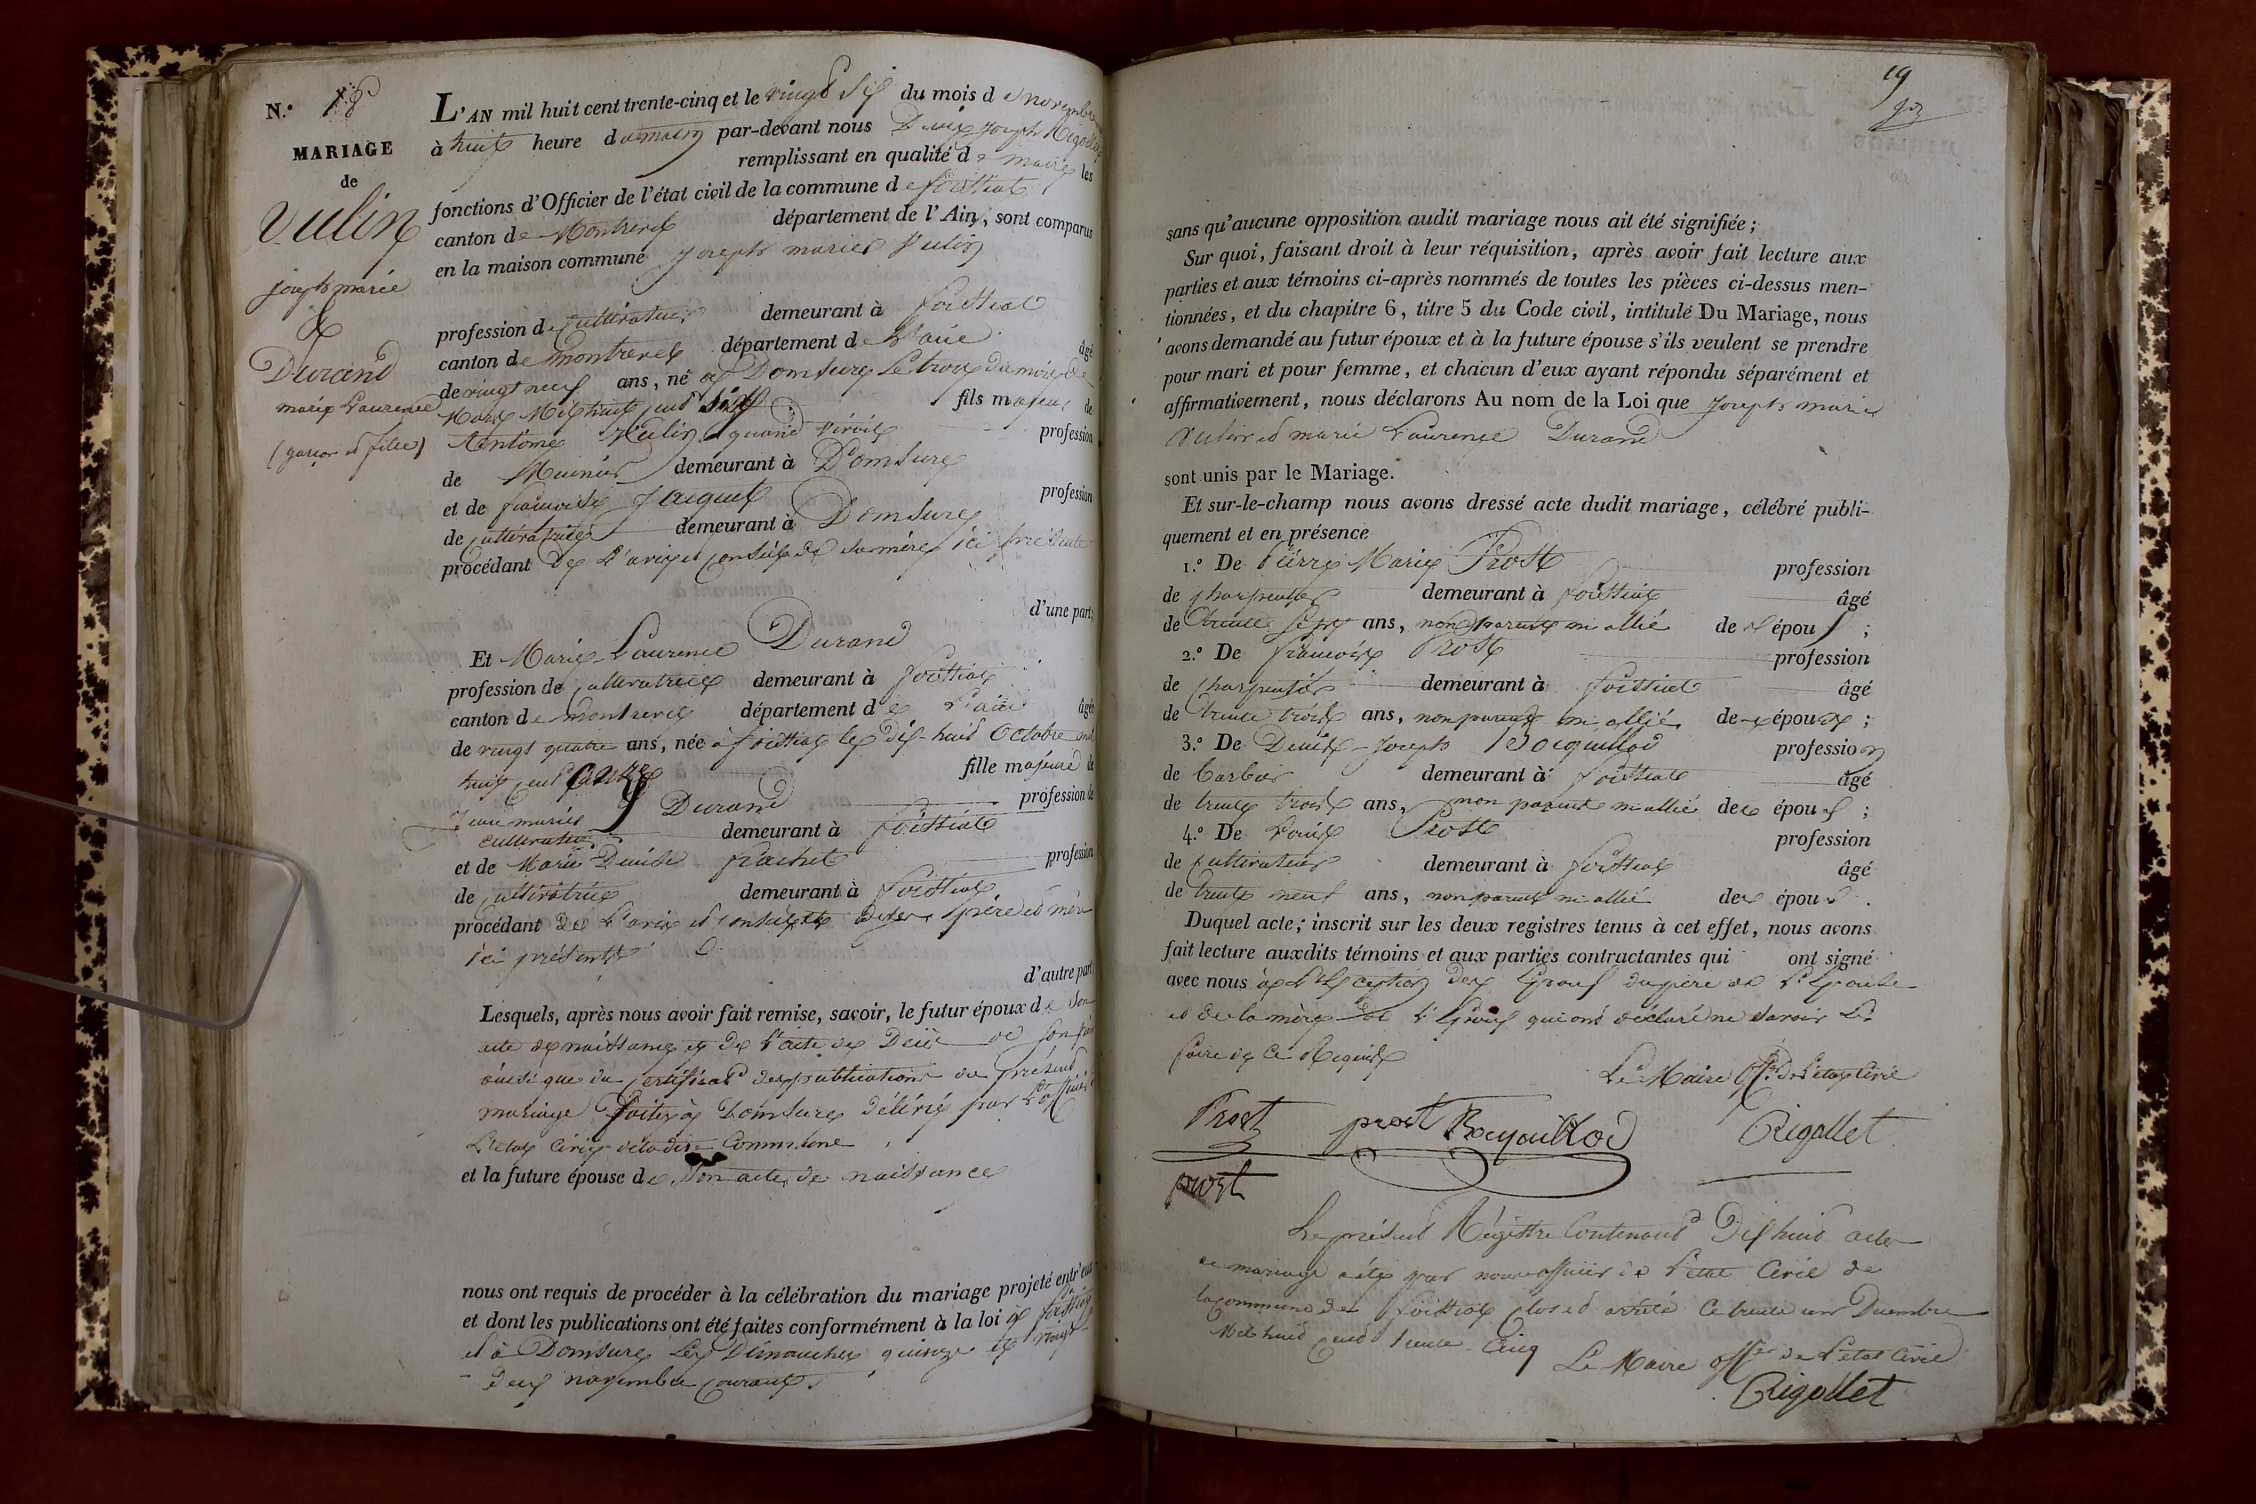 N.° 18
MARIAGE
de
Vulin
joseph marie
&
Durand
marie Laurence
(garçon et fille)
L'AN mil huit cent trente-cinq et le vingt six du mois de novembre
à huit heure du matin par-devant nous Denis Joseph Rigollet
remplissant en qualité de maire les
fonctions d'Officier de l'état civil de la commune de foissiat
canton de Montrevel département de l'Ain, sont comparus
en la maison commune Joseph marie Vulin
profession de cultivateur demeurant à foissiat
canton de montrevel département de L'ain âgé
de vingt neuf ans, né à Domsure le trois du mois de
Mars Mil huit cent six fils majeur de
Antoine Vulin quand vivoit profession
de Meunier demeurant à Domsure
et de francoise Jacquet profession
de cultivatrice demeurant à Domsure
procédant de L'avis et conseil de sa mère ici présente
d'une part;
Et Marie Laurence Durand
profession de cultivatrice demeurant à foissiat
canton de montrevel département de L'ain âgée
de vingt quatre ans, née à foissiat le dix-huit Octobre mil
huit cent onze fille majeure de
Jean marie Durand profession de
cultivateur demeurant à foissiat
et de Marie Denise profession
de cultivatrice demeurant à foissiat
procédant de L'avis et conseil de ses père et mère
ici présents
d'autre part;
Lesquels, après nous avoir fait remise, savoir, le futur époux de son
acte de naissance et de l'acte de Décè de son père
ainsi que du certificat des publications du présent
mariage faites à Domsure délivré par L'officier
L'état Civil de ladite Commune
et la future épouse de son acte de naissance
nous ont requis de procéder à la célébration du mariage projeté entr'eux
et dont les publications ont été faites conformément à la loi à foissiat
et à Domsure Les Dimanches quinze et vingt-
deux novembre courant
19
sans qu'aucune opposition audit mariage nous ait été signifiée;
Sur quoi, faisant droit à leur réquisition, après avoir fait lecture aux
parties et aux témoins ci-après nommés de toutes les pièces ci-dessus men-
tionnées, et du chapitre 6, titre 5 du Code civil, intitulé Du Mariage, nous
avons demandé au futur époux et à la future épouse s'ils veulent se prendre
pour mari et pour femme, et chacun d'eux ayant répondu séparément et
affirmativement, nous déclarons Au nom de la Loi que Joseph marie
Vulin et marie Laurence Durand
sont unis par le Mariage.
Et sur-le-champ nous avons dressé acte dudit mariage, célébré publi-
quement et en présence
1.° De Pierre Marie Prost profession
de charpentier demeurant à foissiat âgé
de trente sept ans, non parent ni allié des époux;
2.° De francois Prost profession
de charpentier demeurant à foissiat âgé
de trente trois ans, non parent ni allié des époux;
3.° De Denis-Joseph Bocquillod profession
de barbier demeurant à foissiat âgé
de trente trois ans, non parent ni allié des époux;
4.° De Louis Prost profession
de cultivateur demeurant à foissiat âgé
de trente neuf ans, non parent ni allié des époux.
Duquel acte; inscrit sur les deux registres tenus à cet effet, nous avons
fait lecture auxdits témoins et aux parties contractantes qui ont signé
avec nous à l'exception des Epoux du père de l'Epouse
et de la mère de l'Epoux qui ont déclaré ne savoir Le
faire de ce Requis
Le Maire off.er de L'état Civil
Prost prost Bocquillod Rigollet
prost
Le présent Régistre Contenant Dix huit acte
de mariage a été par nous officier de l'état Civil de
la commune de foissiat clos et arrêté Ce trente un Décembre
Mil huit cent trente Cinq
Le Maire off.er de L'état Civil
Rigollet